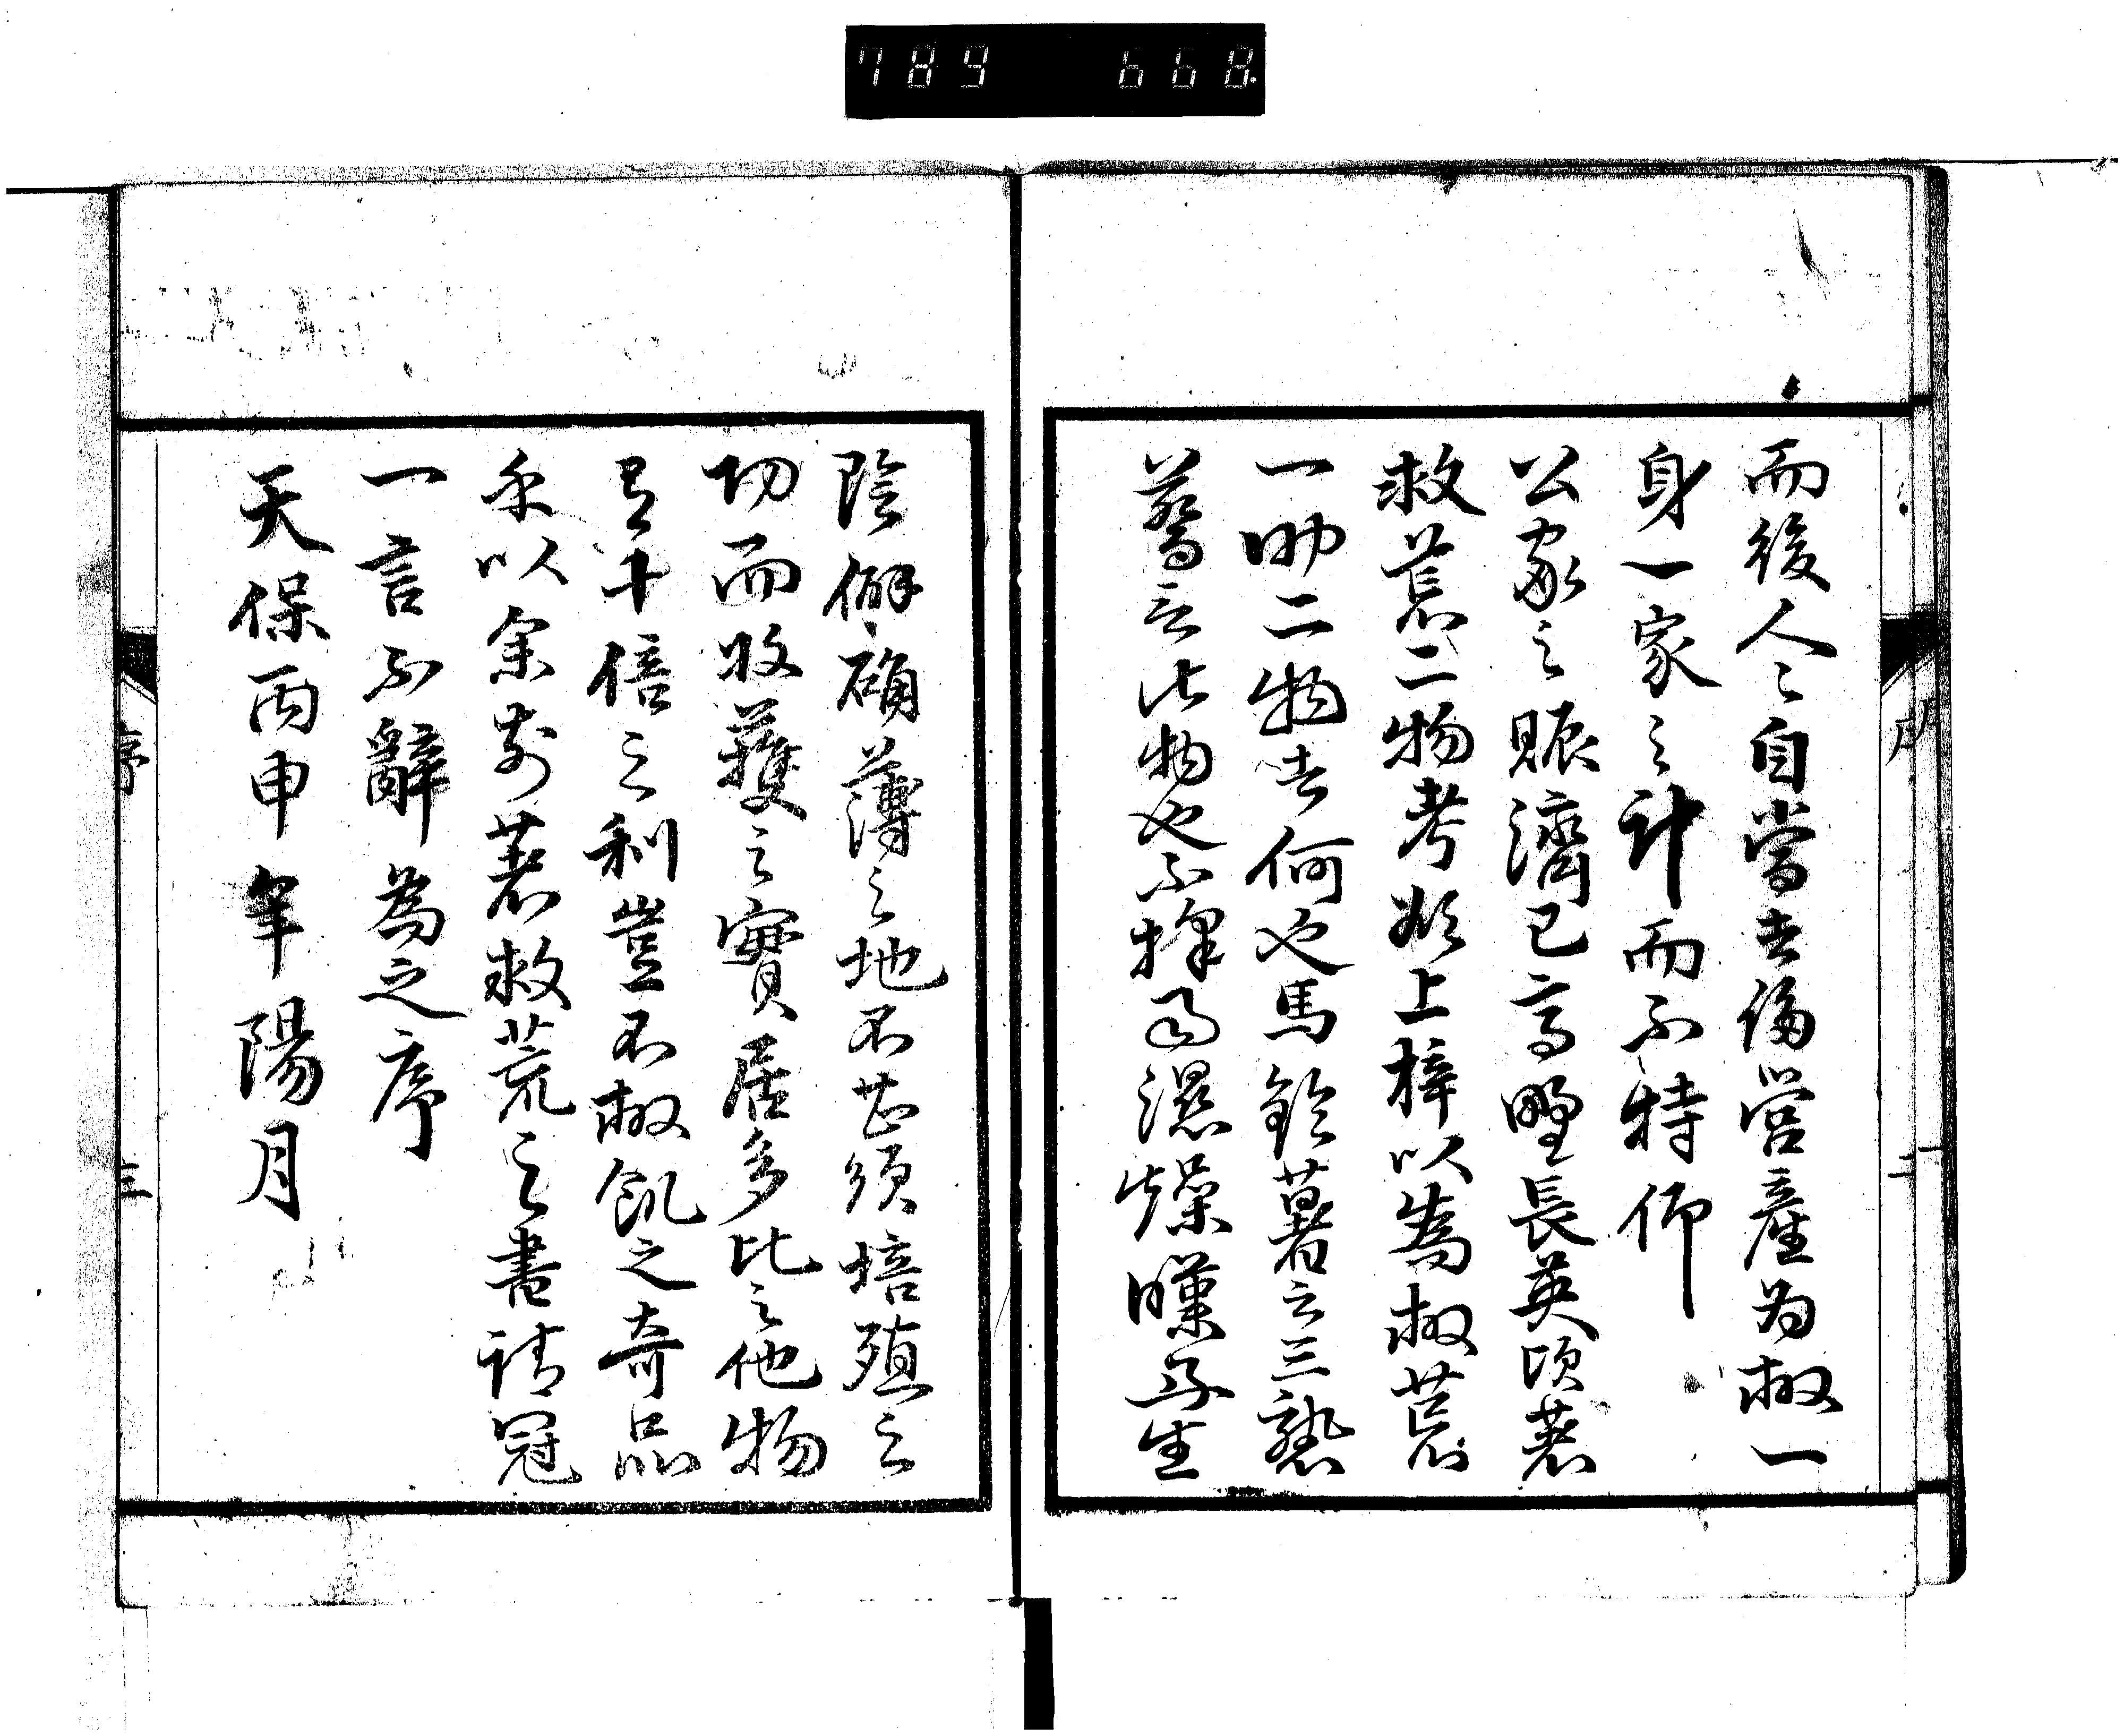 789 668
而後人〻自當去偽営産為救一
身一家之計而不特仰
公家之賑濟已高野長英頃著
救荒二物考将上梓以為救荒
一助二物者何也馬鈴薯云三熟
蕎云此物也不擇濕燥暵孕生
陰僻确薄之地不甚須培殖之
功而收穫之實居多比之他物
有十倍之利豈不救飢之奇品
乎以余前著救荒之書請冠
一言不辭為之序
天保丙申年陽月
序
二
序
三